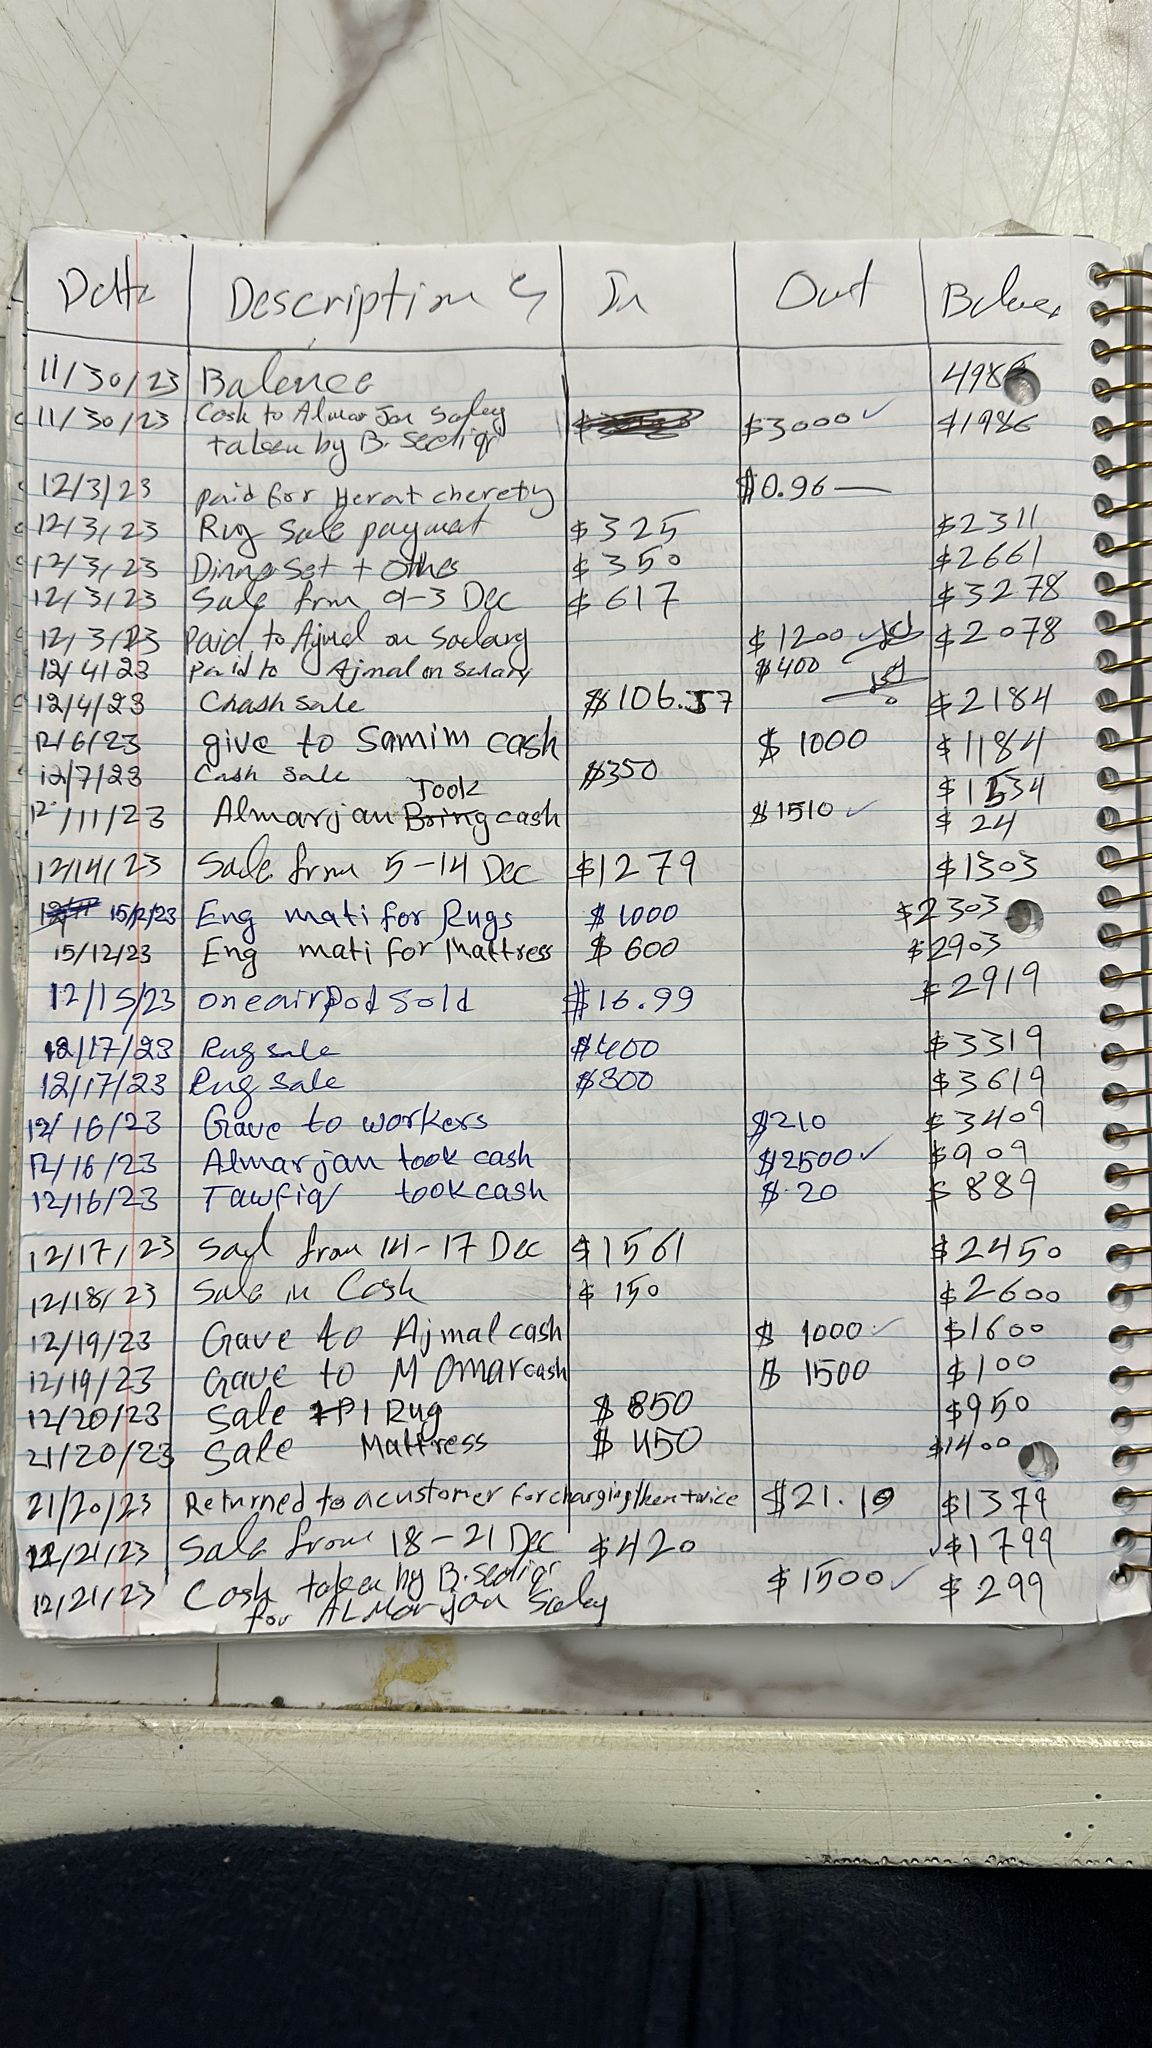 Date Descriptions In Out Balance
11/30/23 Balence 4986
11/30/23 Cash to Almar Jan $3000 ✓ $1986
taken by B. Sediqi
12/3/23 paid for Herat cherety $0.96 —
12/3/23 Rug Sale payment $325 $2311
12/3/23 Dinner Set + Others $350 $2661
12/3/23 Sale from 01-3 Dec $617 $3278
12/3/23 Paid to Ajmal on Salary $1200 $2078
12/4/23 Paid to Ajmal on Salary $400
12/4/23 Chash sale $106.57 $2184
12/6/23 give to Samim cash $1000 $1184
12/7/23 Cash sale $350 $1534
Took
12/11/23 Almarjan Bring cash $1510 ✓ $24
12/14/23 Sale from 5-14 Dec $1279 $1303
15/12/23 Eng mati for Rugs $1000 $2303
15/12/23 Eng mati for Mattress $600 $2903
12/15/23 one airPod Sold $16.99 $2919
12/17/23 Rug sale $400 $3319
12/17/23 Rug Sale $300 $3619
12/16/23 Gave to workers $210 $3409
12/16/23 Almarjan took cash $2500 ✓ $909
12/16/23 Tawfiq took cash $20 $889
12/17/23 Sayl from 14-17 Dec $1561 $2450
12/18/23 Sale in Cash $150 $2600
12/19/23 Gave to Ajmal cash $1000 ✓ $1600
12/19/23 Gave to M Omar cash $1500 $100
12/20/23 Sale 1 Rug $850 $950
21/20/23 Sale Mattress $450 $1400
21/20/23 Returned to a customer for charging them twice $21.10 $1379
12/21/23 Sale from 18-21 Dec $420 ✓$1799
12/21/23 Cash taken by B. Sediqi $1500 ✓ $299
for ALMarjan